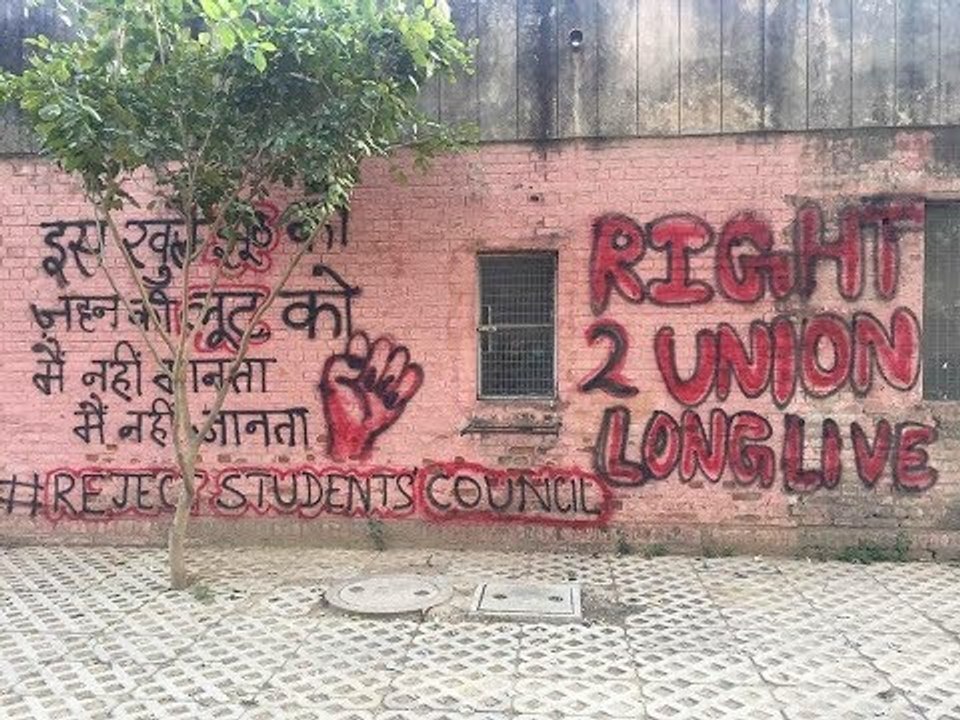 इस खुले झूठ को
जहन की लूट को
मैं नहीं मानता
मैं नहीं जानता
#REJECT STUDENTS' COUNCIL
RIGHT
2 UNION
LONG LIVE